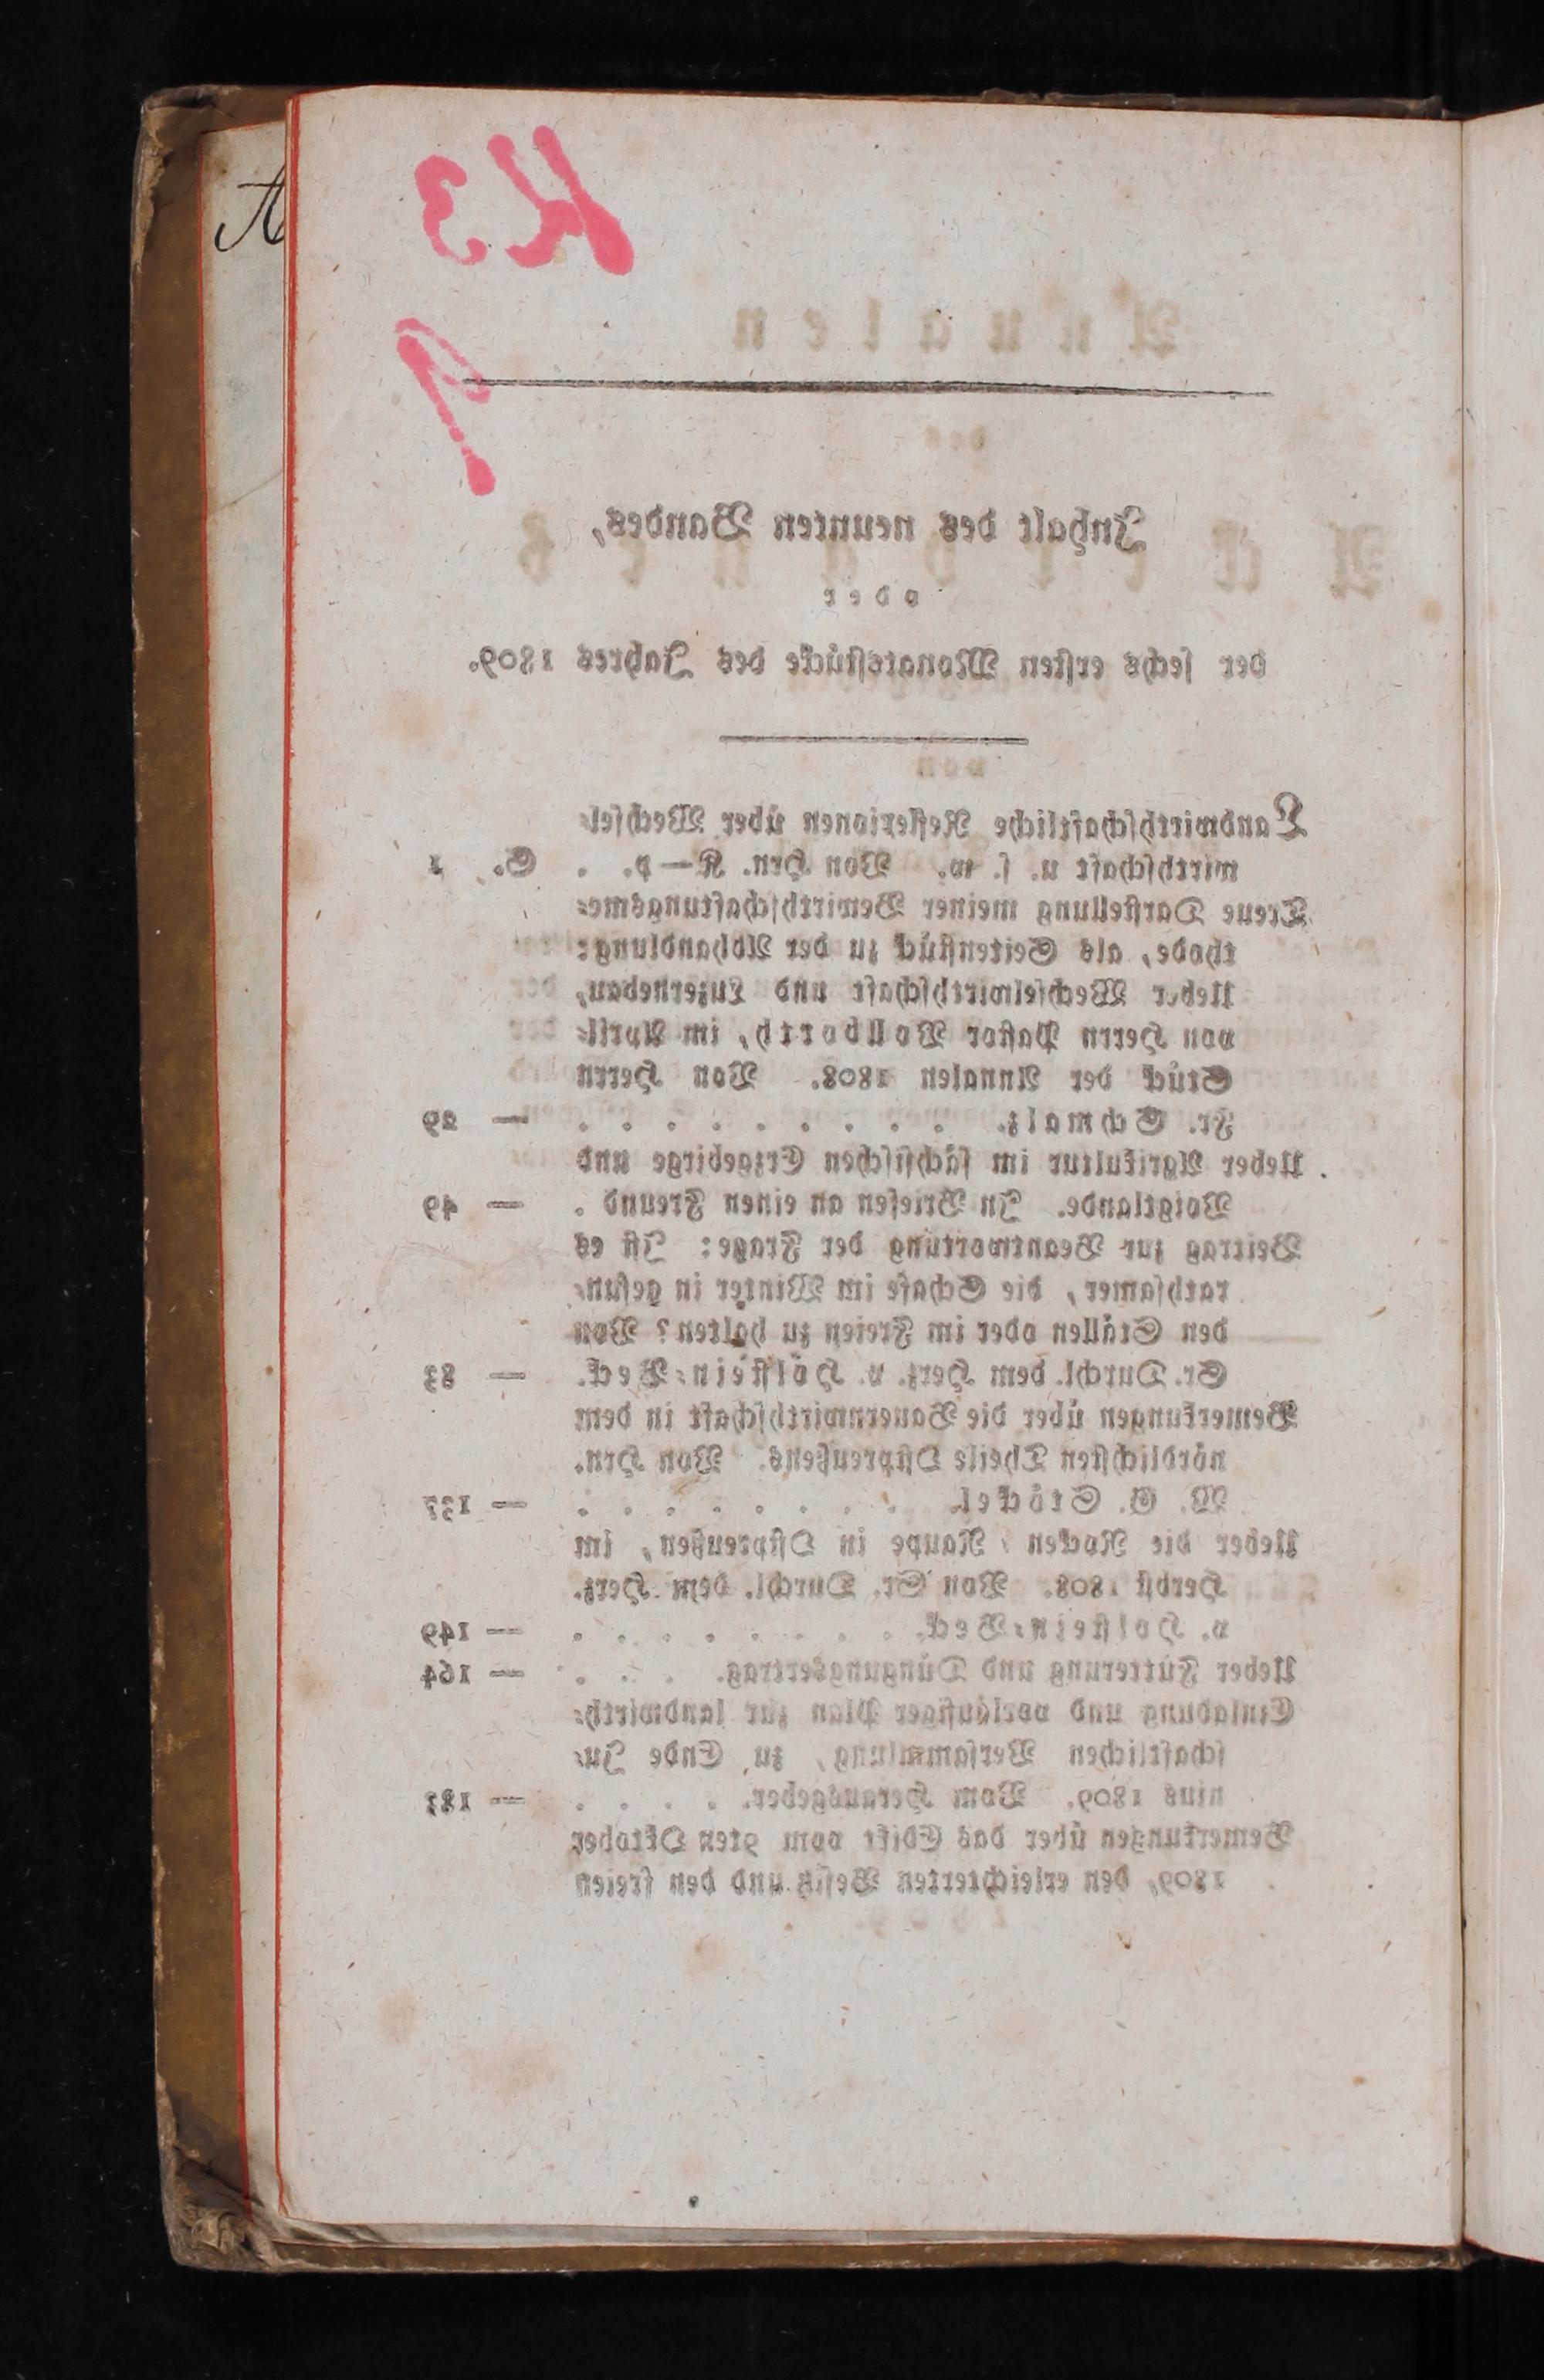 Inhalt des neunten Bandes,
oder
der ſechs erſten Monatsſtücke des Jahres 1809.
Landwirthſchaftliche Reflexionen über Wechſel-
wirthſchaft u. ſ. w. Von Hrn. K—p. . S. 1
Treue Darſtellung meiner Bewirthſchaftungsme-
thode, als Seitenſtück zu der Abhandlung:
Ueber Wechſelwirthſchaft und Luzernebau,
von Herrn Paſtor Vollborth, im April-
Stück der Annalen 1808. Von Herrn
Fr. Schmalz. . . . . . . . . . — 29
Ueber Agrikultur im ſächſiſchen Erzgebirge und
Voigtlande. In Briefen an einen Freund . — 49
Beitrag zur Beantwortung der Frage: Iſt es
rathſamer, die Schafe im Winter in geſun-
den Ställen oder im Freien zu halten? Von
Sr. Durchl. dem Herz. v. Holſtein-Beck. — 83
Bemerkungen über die Bauernwirthſchaft in dem
nördlichſten Theile Oſtpreußens. Von Hrn.
W. G. Stöckel. . . . . . . . . — 137
Ueber die Rocken-Raupe in Oſtpreußen, im
Herbſt 1808. Von Sr. Durchl. dem Herz.
v. Holſtein-Beck. . . . . . . . . — 149
Ueber Fütterung und Düngungsertrag. . . . — 164
Einladung und vorläufiger Plan zur landwirth-
ſchaftlichen Verſammlung, zu Ende Ju-
nius 1809. Vom Herausgeber. . . . . — 181
Bemerkungen über das Edikt vom 9ten Oktober
1809, den erleichterten Beſitz und den freien
Annalen
des
Ackerbaues
von